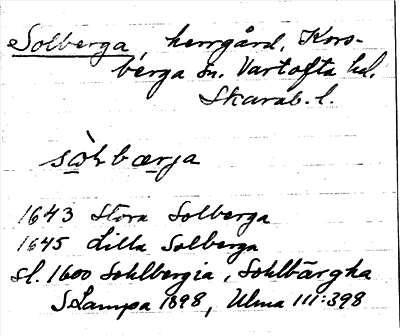 Solberga, herrgård, Kors-
berga sn. Vartofta hd.
Skarab. l.
sòlbærja
1643 Stora Solberga
1645 Lilla Solberga
sl. 1600 Sohlbergia, Sohlbärgha
S Lampa 1898, Ulma 111:398